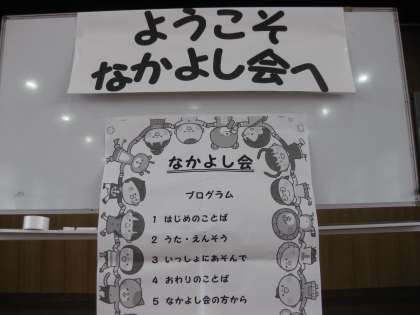 ようこそ
なかよし会へ
なかよし会
プログラム
1 はじめのことば
2 うた・えんそう
3 いっしょにあそんで
4 おわりのことば
5 なかよし会の方から